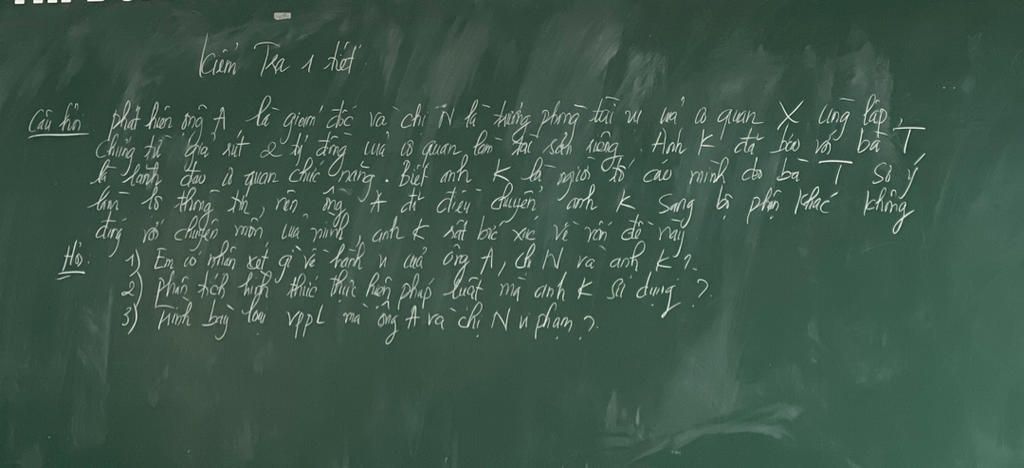 Kiểm Tra 1 tiết
Câu hỏi: phát hiện ông A là giám đốc và chị N là trưởng phòng tài vụ của cơ quan X cùng lập
chứng từ giả rút 2 tỉ đồng của cơ quan làm tài sản riêng. Anh K đã báo với bà T
là lãnh đạo cơ quan chức năng. Biết anh K là người tố cáo mình do bà T sơ ý
làm lộ thông tin, nên ông A đã điều chuyển anh K sang bộ phận khác không
đúng với chuyên môn của mình, anh K rất bức xúc về vấn đề này
Hỏi: 1) Em có nhận xét gì về hành vi của ông A, chị N và anh K?
2) Phân tích hình thức thực hiện pháp luật mà anh K sử dụng?
3) Trình bày loại VPPL mà ông A và chị N vi phạm?